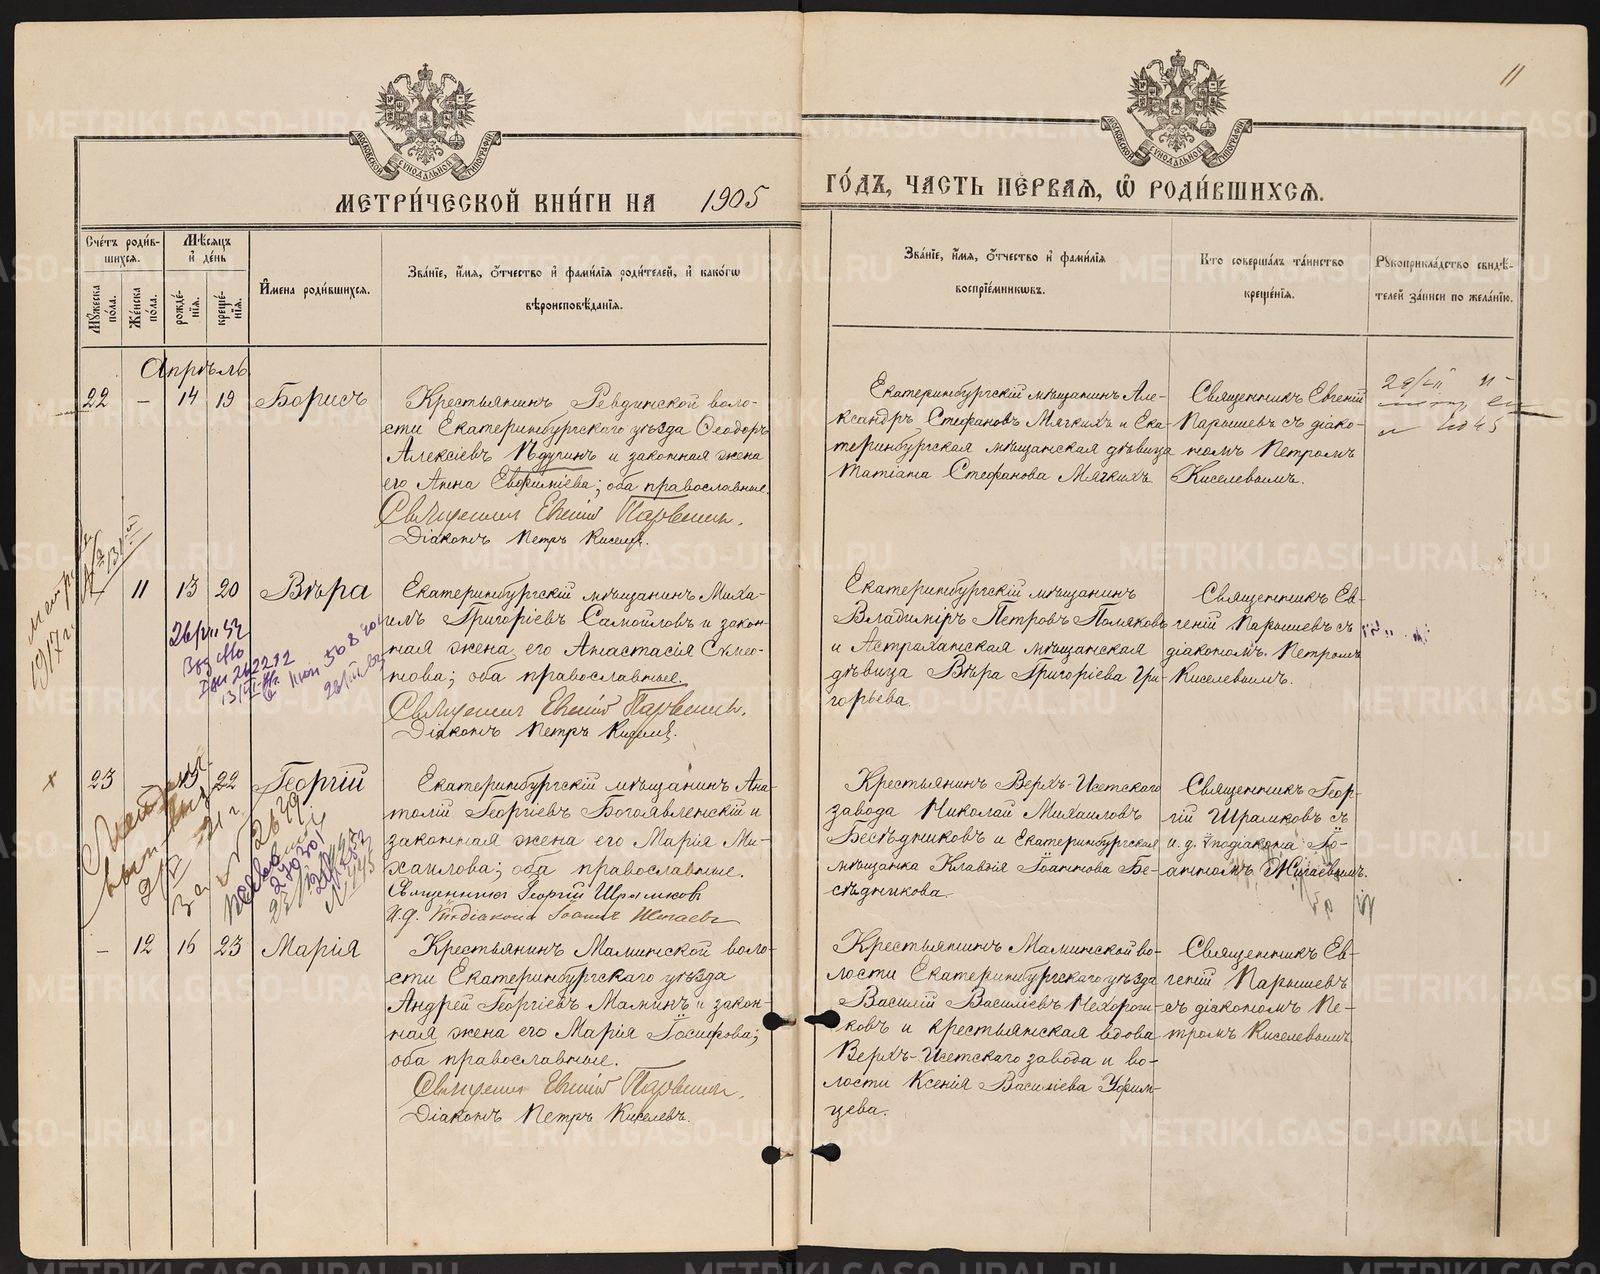 11
МОСКОВСКОЙ СУНОДАЛЬНОЙ ТИПОГРАФІИ
МОСКОВСКОЙ СУНОДАЛЬНОЙ ТИПОГРАФІИ
МЕТРИ́ЧЕСКОЙ КНИ́ГИ НА 1905
ГО́ДЪ, ЧАСТЬ ПЕ́РВАѦ, Ѿ РОДИ́ВШИХСѦ.
Сче́тъ роди́в-
шихсѧ.
Мѣ́сѧцъ
и҆ де́нь
Мꙋ́жеска
по́ла.
Же́нска
по́ла.
рожде́-
нїѧ.
креще́-
нїѧ.
И҆мена̀ роди́вшихсѧ.
Зва́нїе, и҆́мѧ, ѻ҆́тчество и҆ фами́лїѧ роди́телей, и҆ како́гѡ
вѣроисповѣ́данїѧ.
Зва́нїе, и҆́мѧ, ѻ҆́тчество и҆ фами́лїѧ
воспрїе́мникѡвъ.
Кто̀ соверша́лъ та́инство
креще́нїѧ.
Рꙋкоприкла́дство свидѣ́-
телей за́писи по жела́нїю.
Апрѣль
22 – 14 19 Борисъ
Крестьянинъ Ревдинской воло-
сти Екатеринбургскаго уѣзда Ѳеодоръ
Алексіевъ Пѣдугинъ и законная жена
его Анна Евфиміева; оба православные.
Священникъ Евгеній Парышевъ.
Діаконъ Петръ Киселевъ.
Екатеринбургскій мѣщанинъ Але-
ксандръ Стефановъ Мягкихъ и Ека-
теринбургская мѣщанская дѣвица
Татіана Стефанова Мягкихъ.
Священникъ Евгеній
Парышевъ съ діако-
номъ Петромъ
Киселевымъ.
11 13 20 Вѣра
Екатеринбургскій мѣщанинъ Миха-
илъ Григоріевъ Самойловъ и закон-
ная жена его Анастасія Симео-
нова; оба православные.
Священникъ Евгеній Парышевъ.
Діаконъ Петръ Киселевъ.
Екатеринбургскій мѣщанинъ
Владиміръ Петровъ Поляковъ
и Астраханская мѣщанская
дѣвица Вѣра Григоріева Гри-
горьева.
Священникъ Ев-
геній Парышевъ съ
діакономъ Петромъ
Киселевымъ.
1917 г.
23 22 Георгій
Екатеринбургскій мѣщанинъ Ана-
толій Георгіевъ Богоявленскій и
законная жена его Марія Ми-
хаилова; оба православные.
Священникъ Георгій Шрамковъ
И.д. Ѵподіакона Іоаннъ Жигаевъ
Крестьянинъ Верхъ-Исетскаго
завода Николай Михаиловъ
Бесѣдниковъ и Екатеринбургская
мѣщанка Клавдія Іоаннова Бе-
сѣдникова.
Священникъ Геор-
гій Шрамковъ съ
и.д. ѵподіакона Іо-
анномъ Жигаевымъ.
– 12 16 23 Марія
Крестьянинъ Маминской воло-
сти Екатеринбургскаго уѣзда
Андрей Георгіевъ Маминъ и закон-
ная жена его Марія Іосифова;
оба православные.
Священникъ Евгеній Парышевъ.
Діаконъ Петръ Киселевъ.
Крестьянинъ Маминской во-
лости Екатеринбургскаго уѣзда
Василій Василіевъ Нехорош-
ковъ и крестьянская вдова
Верхъ-Исетскаго завода и во-
лости Ксенія Василіева Уфим-
цева.
Священникъ Ев-
геній Парышевъ
съ діакономъ Пе-
тромъ Киселевымъ.
METRIKI.GASO-URAL.RU